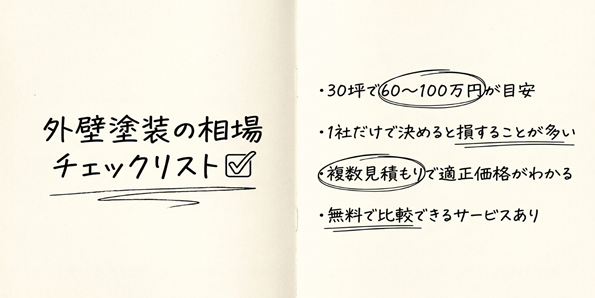 外壁塗装の相場
チェックリスト
・30坪で60〜100万円が目安
・1社だけで決めると損することが多い
・複数見積もりで適正価格がわかる
・無料で比較できるサービスあり